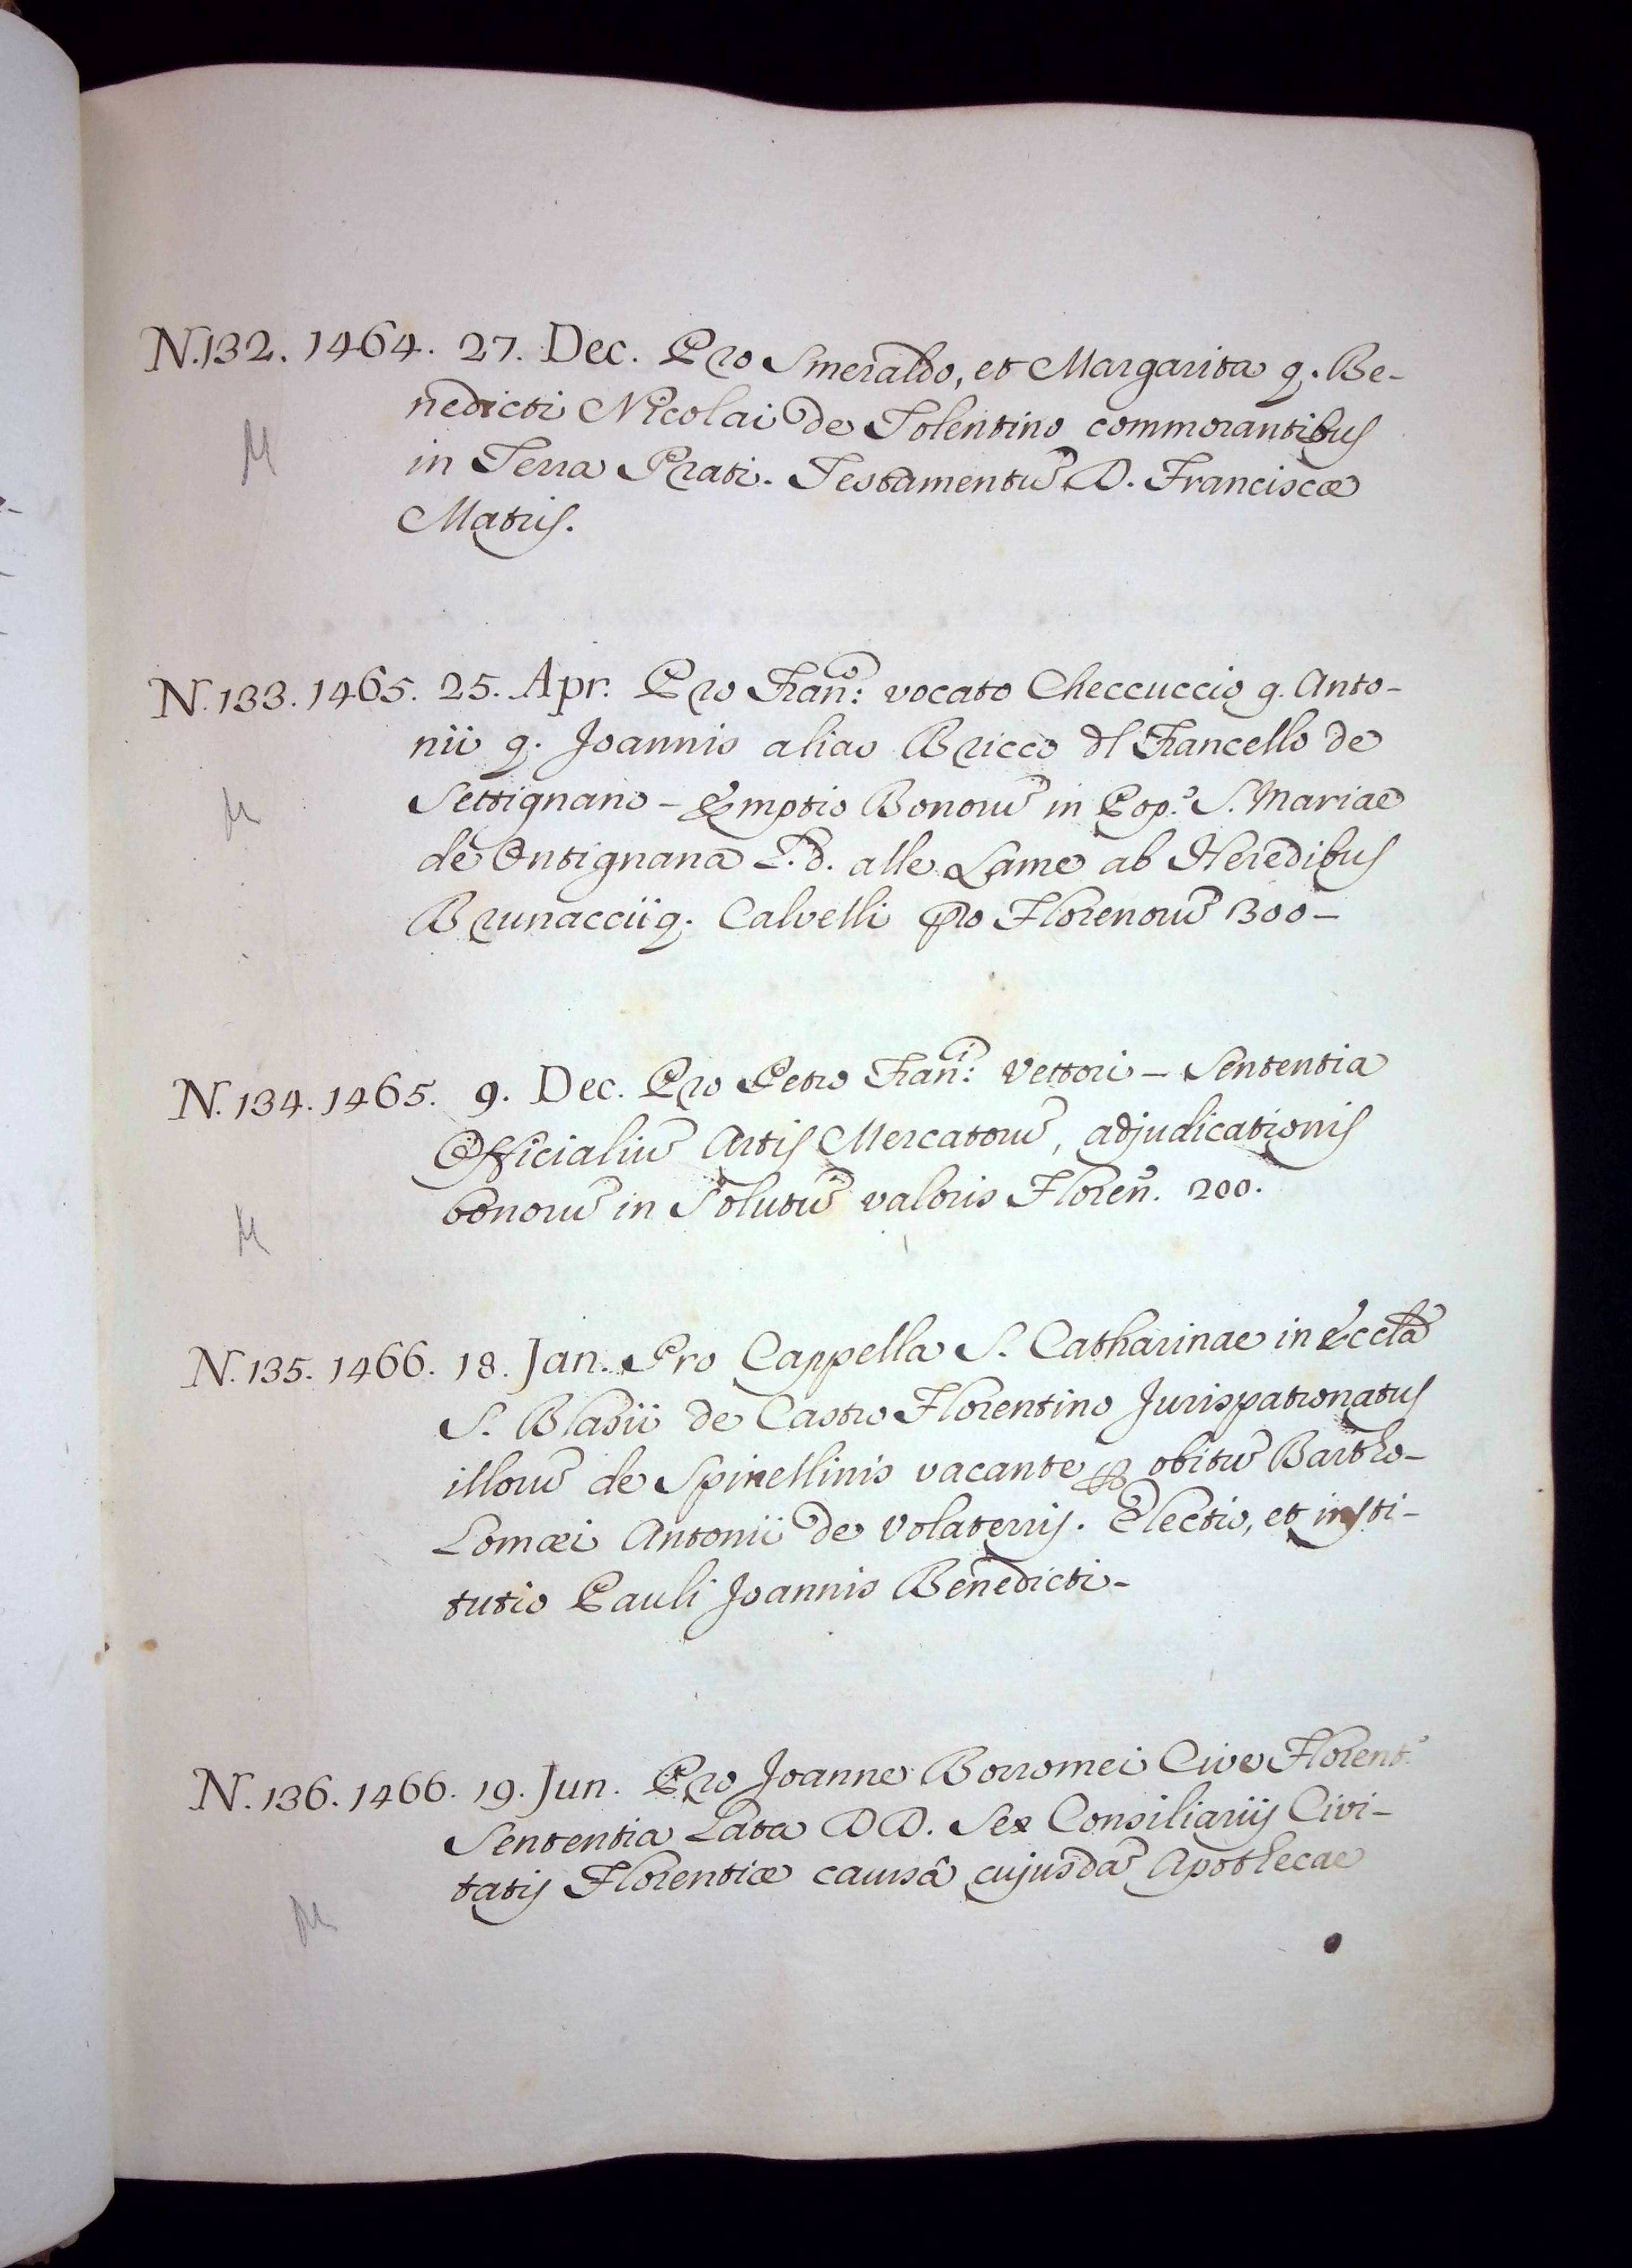 N.132. 1464. 27. Dec. Pro Smeraldo, et Margarita q. Be-
nedicti Nicolai de Tolentino commorantibus
in Terra Prati. Testamentũ D. Franciscæ
M
Matris.
N.133. 1465. 25. Apr. Pro Franco: vocato Checcuccio q. Anto-
nii q. Joannis alias Bricco dl Francello de
Settignano - Emptio Bonorũ in Pop.o S. Mariae
M
de Ontignana L.d. alle Lame ab Heredibus
Brunaccii q. Calvelli pro Florenorũ 300-
N.134. 1465. 9. Dec. Pro Petro Frani: Vettori - Sententia
Officialiũ Artis Mercatorũ, adjudicationis
bonorũ in Solutũ valoris Floren. 200.
M
N.135. 1466. 18. Jan. Pro Cappella S. Catharinae in Eccla
S. Blasii de Castro Florentino Jurispatronatus
illorũ de Spinellinis vacante ꝑ obitũ Bartho-
lomæi Antonii de Volaterris. Electio, et insti-
tutio Pauli Joannis Benedicti-
N.136. 1466. 19. Jun. Pro Joanne Borromei Cive Florent.o
Sententia Lata DD. Sex Consiliariis Civi-
tatis Florentiæ causâ cujusdã Apothecae
M